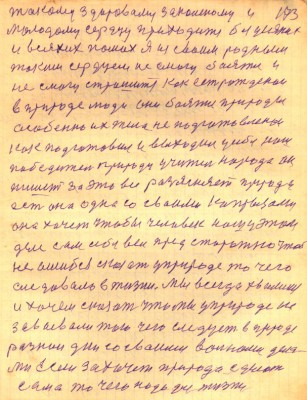 такому здоровому законному и 173
молодому сердцу приходить был двоим
и всяких помех Я и своим родным
таким сердцем не смогу бояти и
не смогу страшит как естрожденои
в природе люди они бояти природы
особенно их тела не подготовленои
как подготовил и выходил учитель наш
победител природы учител народа он
пишет за это все разясняет природа
ест она одна со своими капризами
она хочет чтобы человек нашу этом
деле сам себя вел предсторожно чтоб
не ошибся сказат у природе то чего
следовало в жизни. Мы всегда хвалимся
и хочем сказат что мы у природе не
завоевали того чего следует в природе
разном дню со своими вольными дела-
ми Если захочет природа сделает
сама то чего надо для жизни